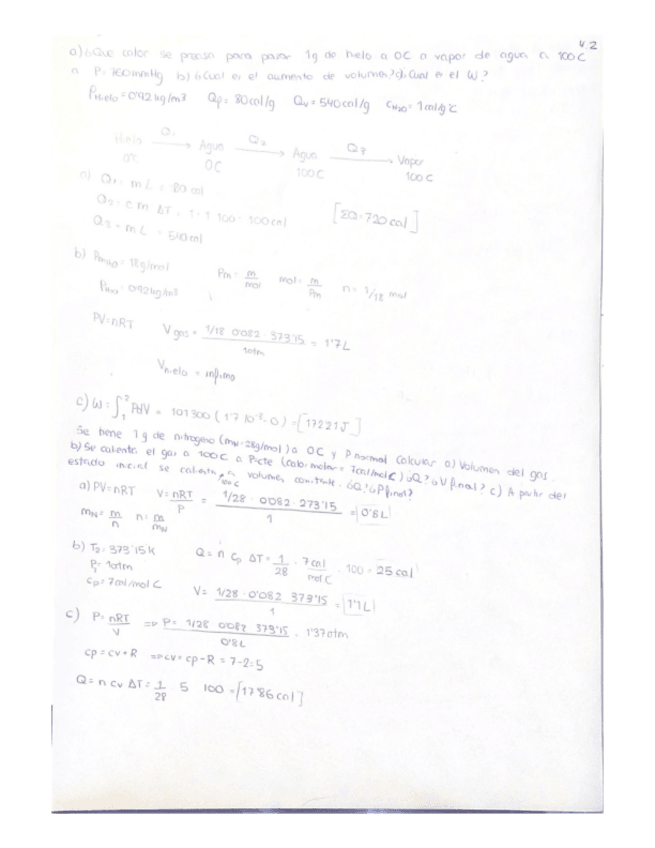 V.2
a) ¿Que calor se precisa para pasar 1g de hielo a 0C a vapor de agua a 100C
a P=760mmHg b) ¿Cual es el aumento de volumen? c) ¿Cual es el W?
ρHielo = 0'92 kg/m³ Qf = 80cal/g Qv = 540cal/g cH2O = 1cal/g°C
Hielo 0C → Q1 → Agua 0C → Q2 → Agua 100C → Q3 → Vapor 100C
a) Q1 = m L = 80 cal
Q2 = c m ΔT = 1 · 1 · 100 = 100cal [ΣQ = 720cal]
Q3 = m L = 540cal
b) PmH2O = 18g/mol Pm = m/mol mol = m/Pm n = 1/18 mol
0'92kg/m³
PV=nRT Vgas = 1/18 · 0'082 · 373'15 / 1atm = 1'7L
Vhielo = infimo
c) W = ∫₁² PdV = 101300 (1'7 10⁻³ - 0) = [172'21J]
Se tiene 1g de nitrogeno (mN = 28g/mol) a 0C y P normal Calcular a) Volumen del gas
b) Se calienta el gas a 100C a P=cte (calor molar = 7cal/molC) ¿Q? ¿V final? c) A partir del
estado inicial se calienta a 100C a volumen constante. ¿Q? ¿P final?
a) PV=nRT V = nRT/P = 1/28 · 0'082 · 273'15 / 1 = [0'8L]
mN = m/n n = m/mN
b) T2 = 373'15K Q = n cp ΔT = 1/28 · 7cal/molC · 100 = 25cal
P = 1atm
cp = 7cal/mol C V = 1/28 · 0'082 · 373'15 / 1 = [1'1L]
c) P = nRT/V => P = 1/28 · 0'082 · 373'15 / 0'8L = 1'37atm
cp = cv + R => cv = cp - R = 7 - 2 = 5
Q = n cv ΔT = 1/28 · 5 · 100 = [17'86cal]